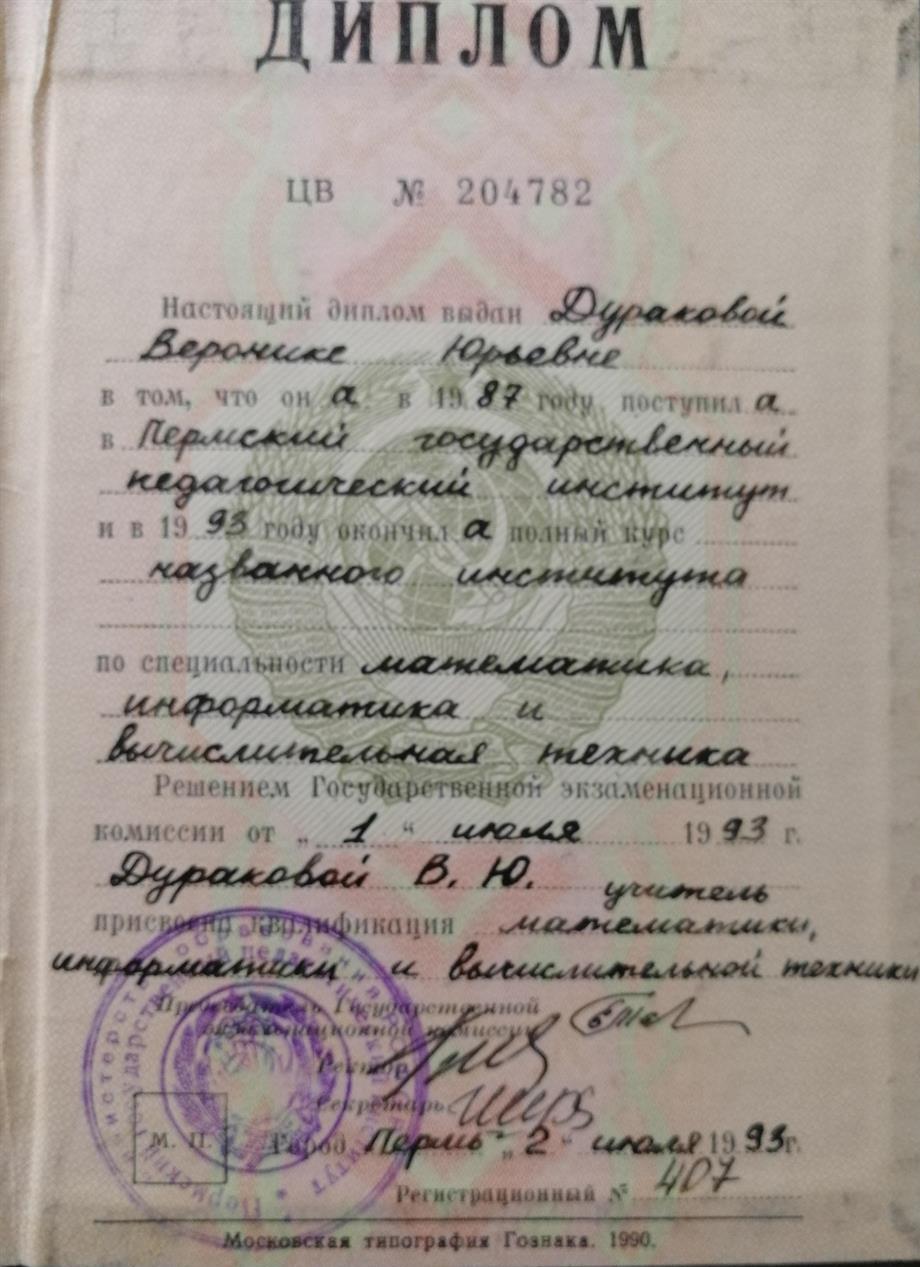 ДИПЛОМ
ЦВ № 204782
Настоящий диплом выдан Дураковой
Веронике Юрьевне
в том, что он а в 1987 году поступил а
в Пермский государственный
педагогический институт
и в 1993 году окончил а полный курс
названного института
по специальности математика,
информатика и
вычислительная техника
Решением Государственной экзаменационной
комиссии от „ 1 “ июля 1993 г.
Дураковой В. Ю. учитель
присвоена квалификация математики,
информатики и вычислительной техники
Председатель Государственной
экзаменационной комиссии
Ректор
Секретарь
М. П. Город Пермь „ 2 “ июля 1993г.
Регистрационный № 407
Московская типография Гознака. 1990.